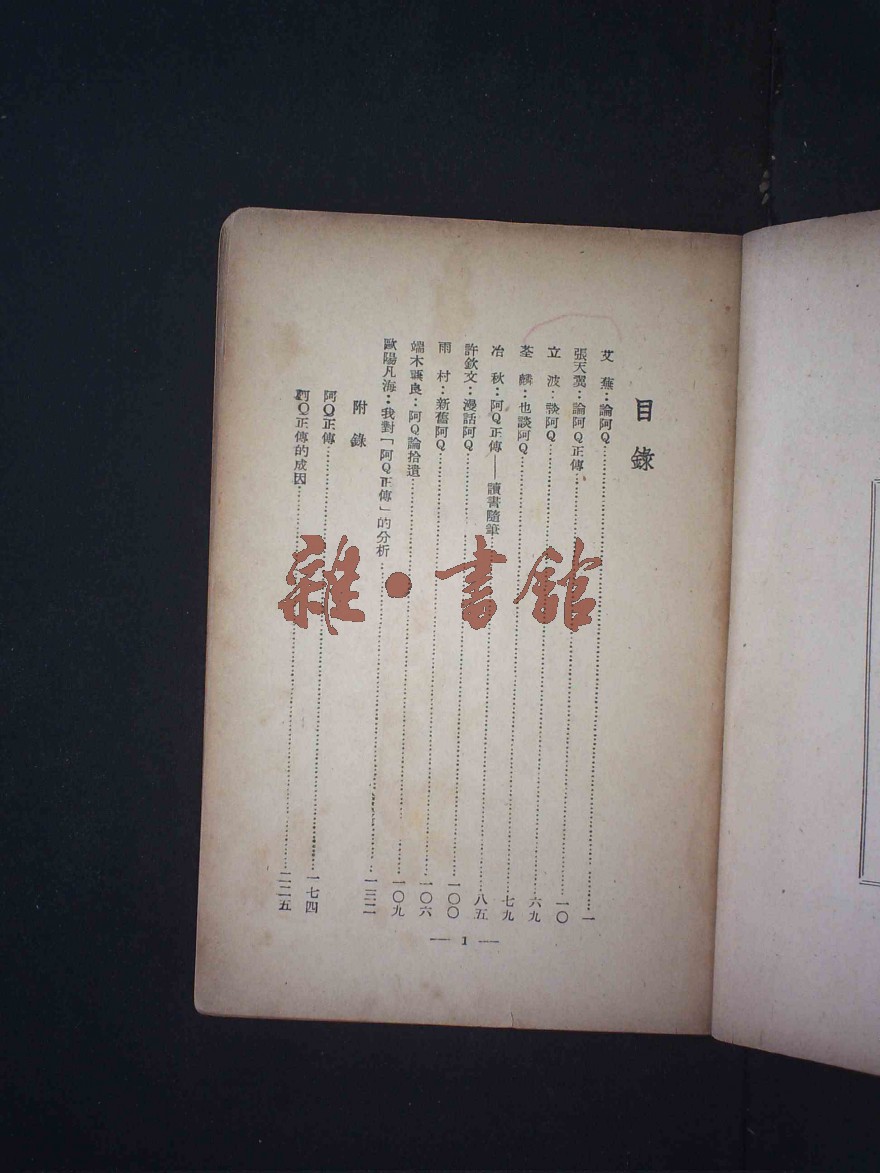 目錄
艾蕪：論阿Q……一
張天翼：論阿Q正傳……一〇
立波：談阿Q……六九
荃麟：也談阿Q……七九
冶秋：阿Q正傳——讀書隨筆……八五
許欽文：漫話阿Q……一〇〇
雨村：新舊阿Q……一〇六
端木蕻良：阿Q論拾遺……一〇九
歐陽凡海：我對「阿Q正傳」的分析……一三二
附錄
阿Q正傳……一七四
阿Q正傳的成因……二二五
— 1 —
雜·書館